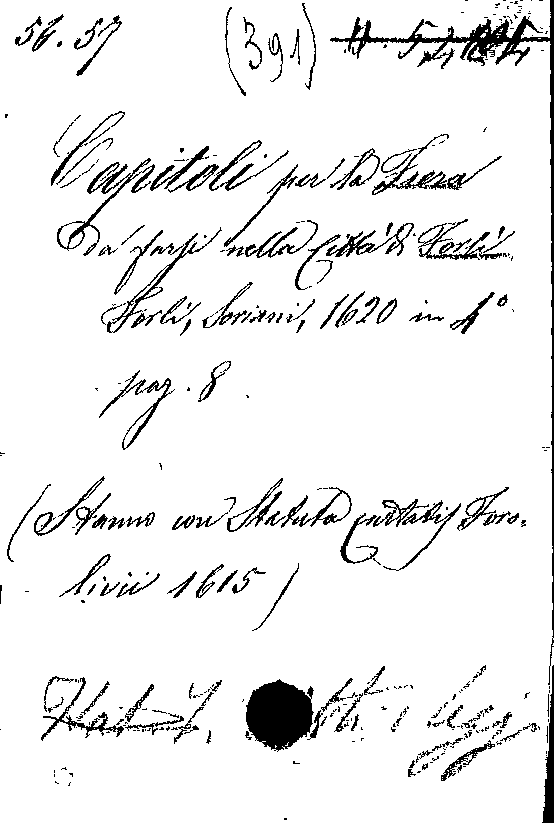 56.57 (391)
Capitoli per la Fiera
da farsi nella Città di Forlì
Forlì, Soriani, 1620 in 4°
pag. 8.
(Stanno con Statuta civitatis Foro-
livii 1615)
Stat. Leggi